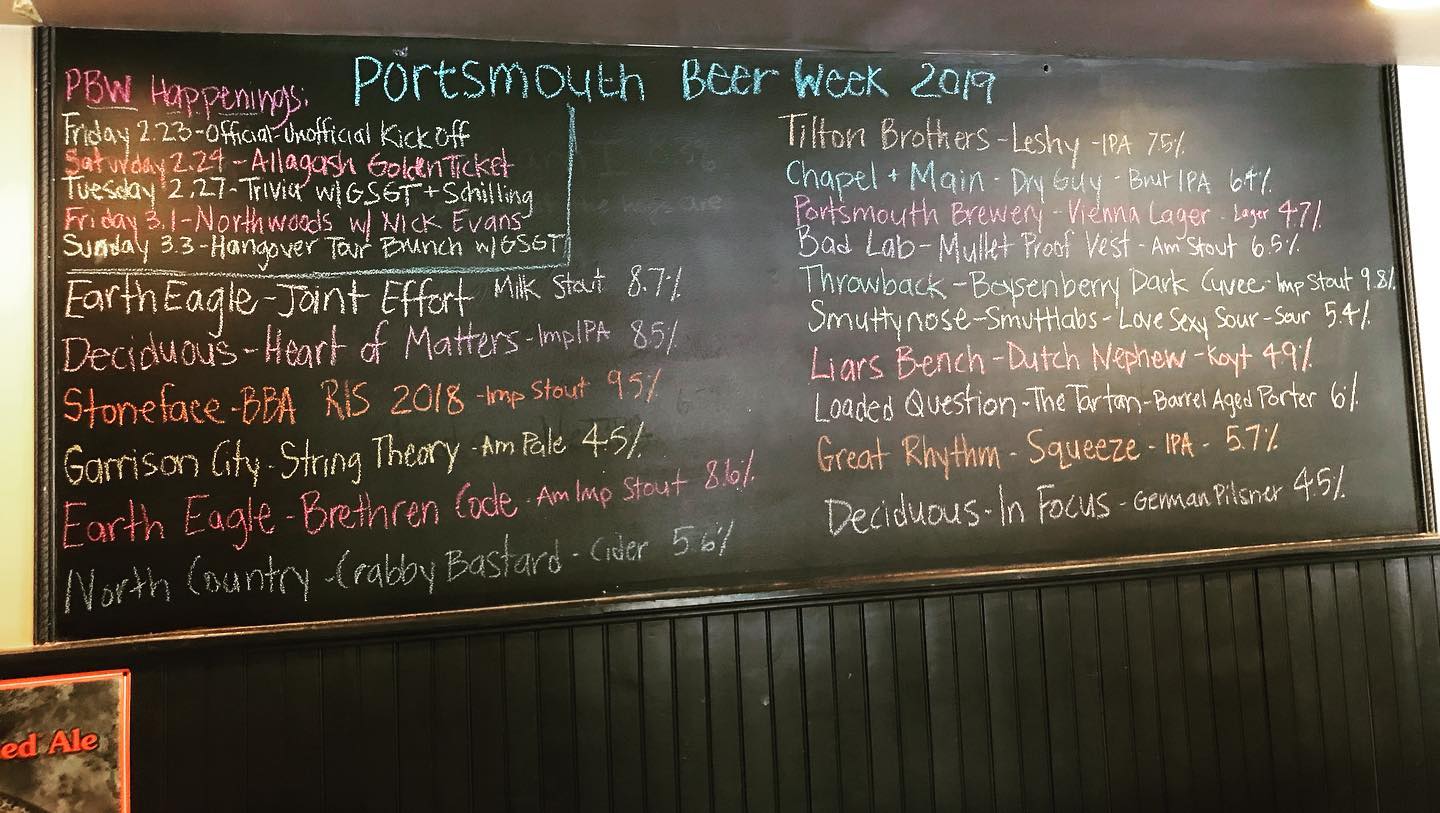 Portsmouth Beer Week 2019
PBW Happenings:
Friday 2.23-Official-Unofficial Kick off
Saturday 2.24-Allagash Golden Ticket
Tuesday 2.27-Trivia w/GSGT+Schilling
Friday 3.1-Northwoods w/ Nick Evans
Sunday 3.3-Hangover Tour Brunch w/GSGT
Earth Eagle-Joint Effort Milk Stout 8.7%
Deciduous-Heart of Matters-Imp IPA 85%
Stoneface-BBA RIS 2018-Imp Stout 95%
Garrison City-String Theory-Am Pale 45%
Earth Eagle-Brethren Code-Am Imp Stout 8.6%
North Country-Crabby Bastard-Cider 5.6%
Tilton Brothers-Leshy-IPA 75%
Chapel + Main-Dry Guy-Brut IPA 64%
Portsmouth Brewery-Vienna Lager-Lager 47%
Bad Lab-Mullet Proof Vest-Am Stout 6.5%
Throwback-Boysenberry Dark Cuvee-Imp Stout 9.8%
Smuttynose-Smuttlabs-Love Sexy Sour-Sour 5.4%
Liars Bench-Dutch Nephew-Koyt 49%
Loaded Question-The Tartan-Barrel Aged Porter 6%
Great Rhythm-Squeeze-IPA-5.7%
Deciduous-In Focus-German Pilsner 45%
ed Ale